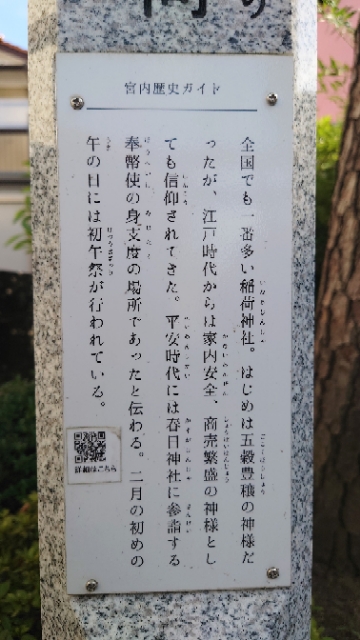 宮内歴史ガイド
全国でも一番多い稲荷神社。はじめは五穀豊穣の神様だ
ったが、江戸時代からは家内安全、商売繁盛の神様とし
ても信仰されてきた。平安時代には春日神社に参詣する
奉幣使の身支度の場所であったと伝わる。二月の初めの
午の日には初午祭が行われている。
詳細はこちら